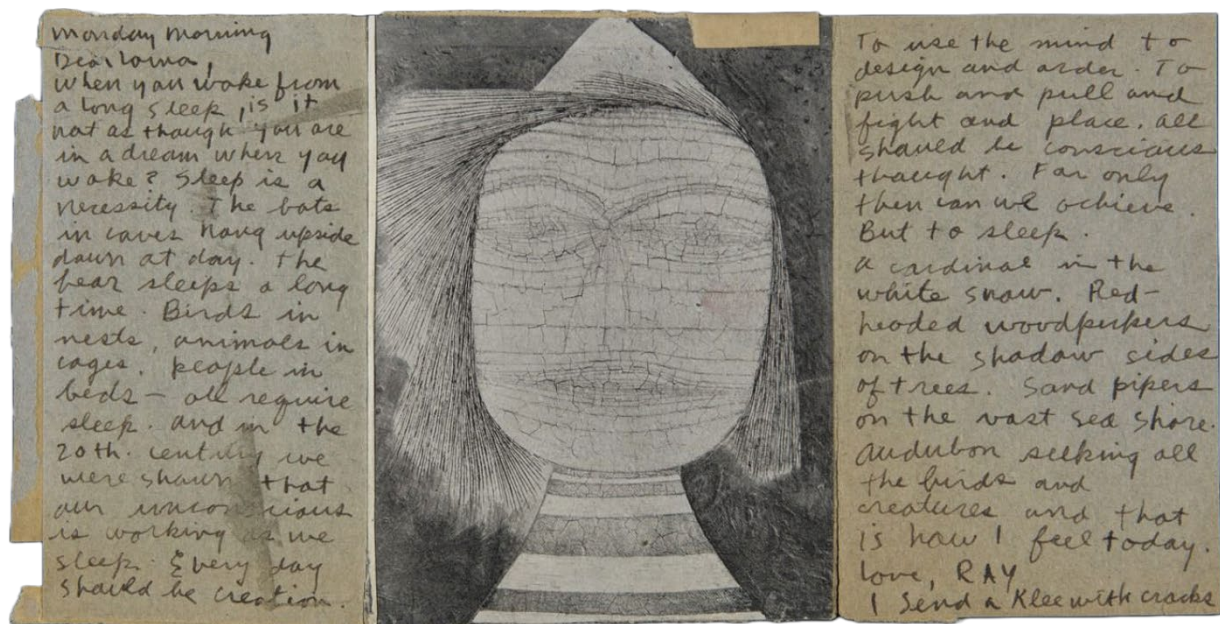 Monday Morning
Dear Lorna,
When you wake from
a long sleep, is it
not as though you are
in a dream when you
wake? Sleep is a
necessity. The bats
in caves hang upside
down at day. The
bear sleeps a long
time. Birds in
nests, animals in
cages, people in
beds — all require
sleep. and in the
20th. century we
were shown that
our unconscious
is working as we
sleep. Every day
should be creation.
To use the mind to
design and order. To
push and pull and
fight and place. all
should be conscious
thought. For only
then can we achieve.
But to sleep.
a cardinal in the
white snow. Red-
headed woodpeckers
on the shadow sides
of trees. Sand pipers
on the vast sea shore.
Audubon seeking all
the birds and
creatures and that
is how I feel today.
Love, RAY
I send a Klee with cracks